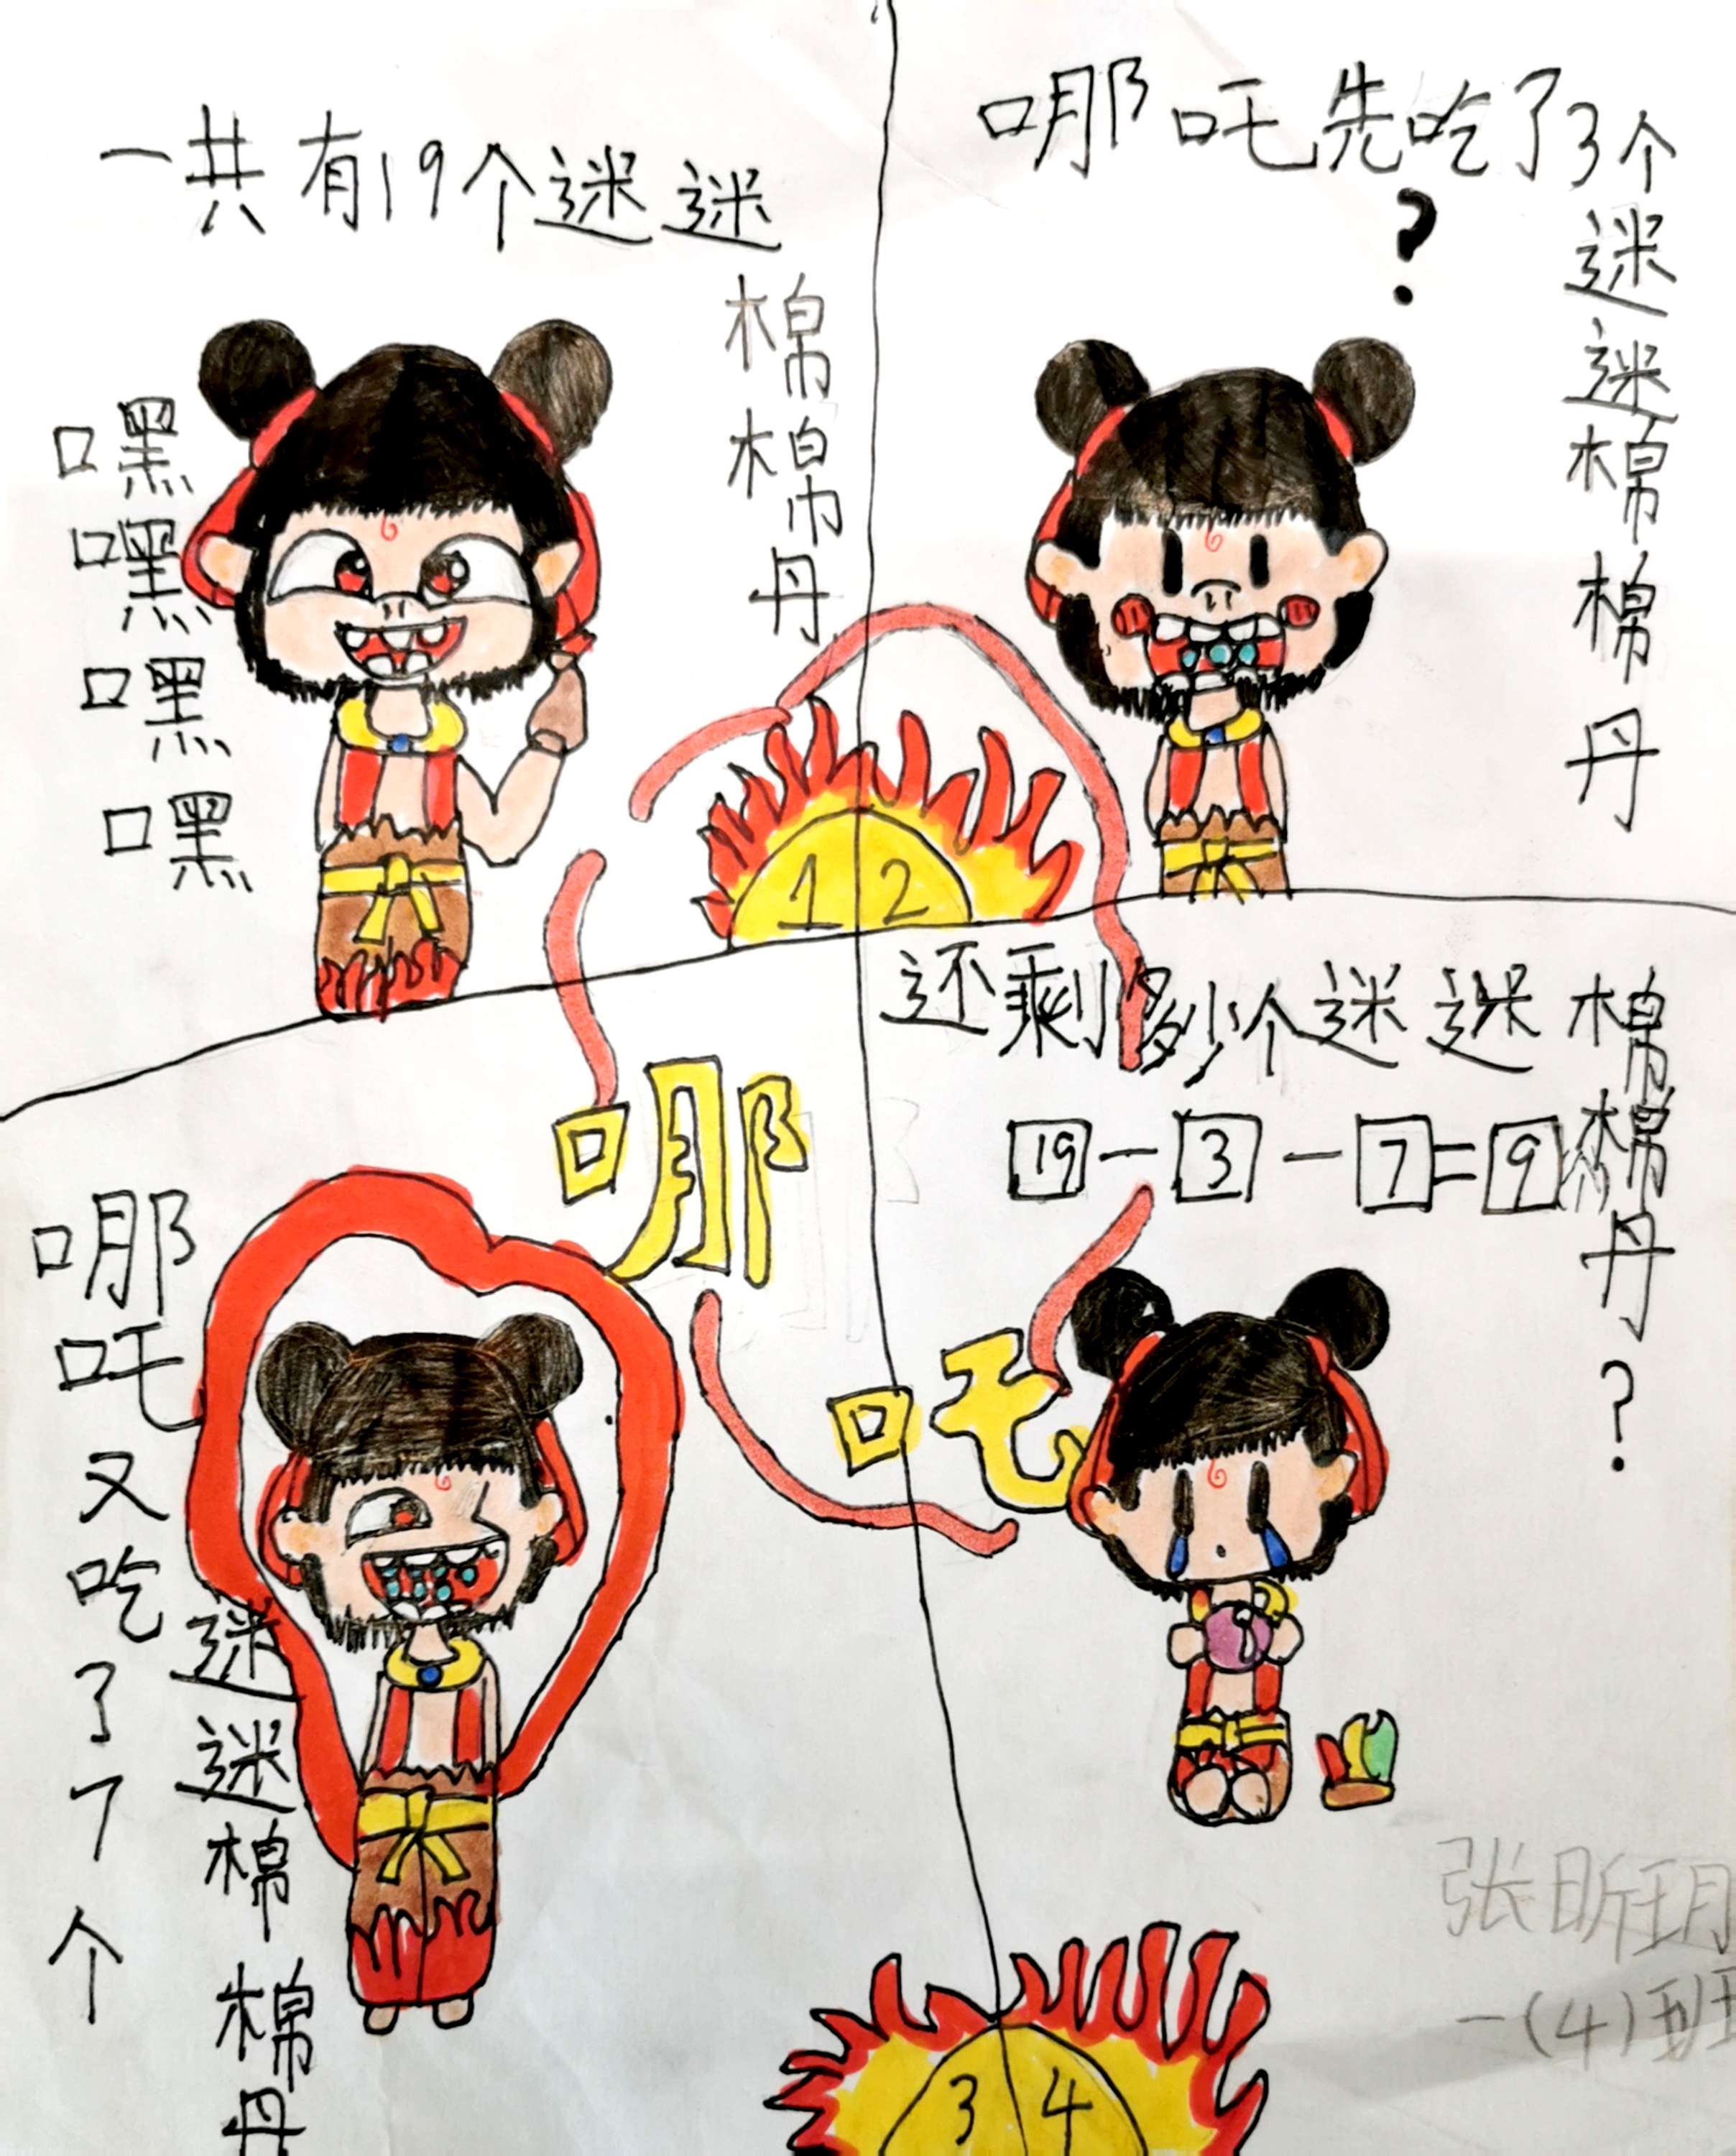 一共有19个迷迷
棉棉丹
嘿嘿嘿嘿
1
哪吒先吃了3个
迷迷棉棉丹
?
2
哪吒
哪吒又吃了7个
迷迷棉棉丹
3
还剩多少个迷迷棉
棉丹?
19-3-7=9
4
张昕玥
一(4)班